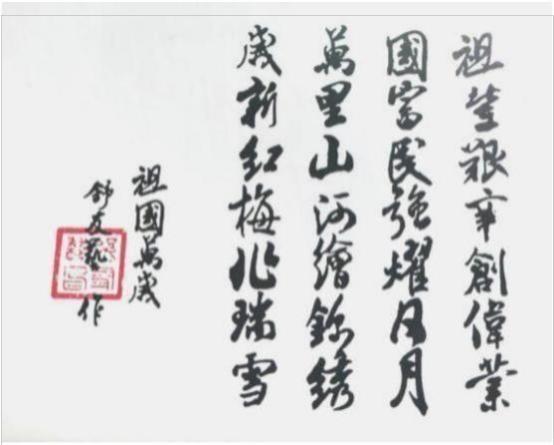 祖輩艱辛創偉業
國富民強耀日月
萬里山河繪錦綉
歲新紅梅兆瑞雪
祖國萬歲
舒友藝作